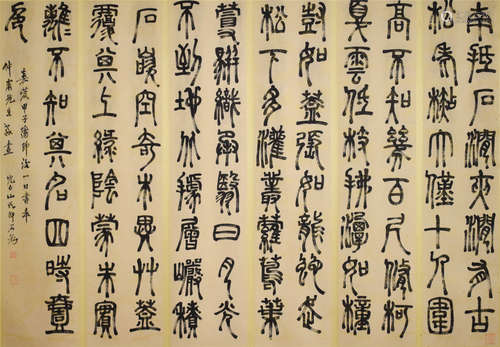 南抵石澗夾澗有古
松老杉大僅十人圍
高不知幾百尺修柯
戛雲低枝拂潭如幢
豎如蓋張如龍蛇走
松下多灌叢蘿蔦葉
蔓駢織承翳日月光
不到地北據層巖積
石嵌空奇木異草蓋
覆其上綠陰蒙朱實
離不知其名四時壹
色
甲子 後一日書奉
先生